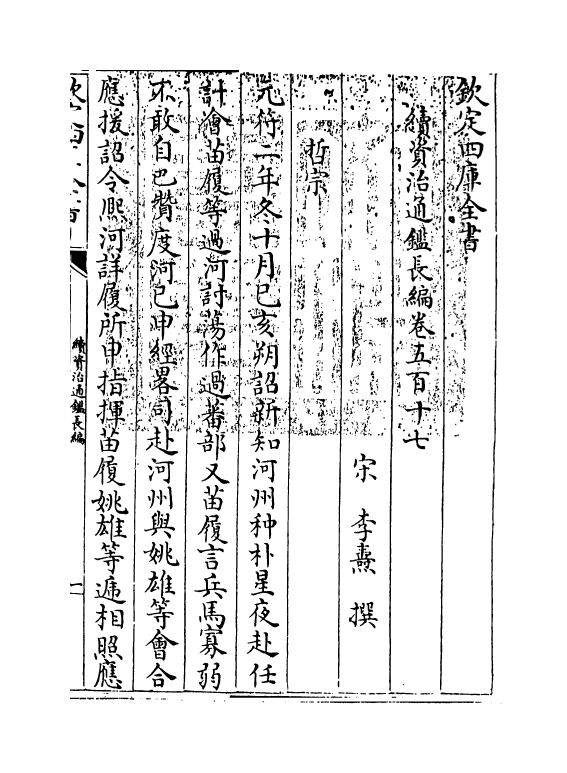 欽定四庫全書
續資治通鑑長編卷五百十七
宋 李燾 撰
哲宗
元符二年冬十月己亥朔詔新知河州种朴星夜赴任
計會苗履等過河討蕩作過蕃部又苗履言兵馬寡弱
不敢自巴贊度河已申經畧司赴河州與姚雄等會合
應援詔令熈河詳履所申指揮苗履姚雄等遞相照應
欽定四庫全書
續資治通鑑長編